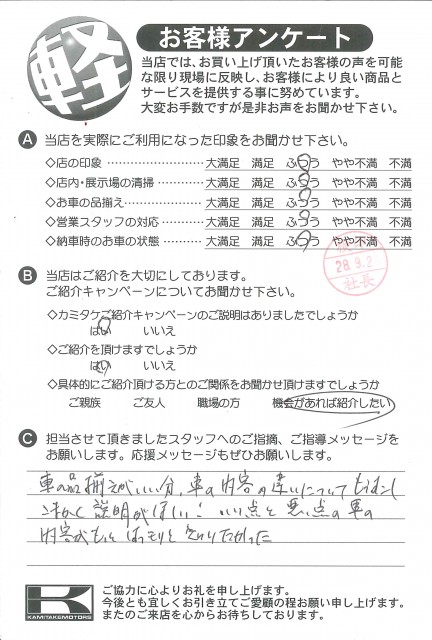 軽
お客様アンケート
当店では、お買い上げ頂いたお客様の声を可能
な限り現場に反映し、お客様により良い商品と
サービスを提供する事に努めています。
大変お手数ですが是非お声をお聞かせ下さい。
A 当店を実際にご利用になった印象をお聞かせ下さい。
◇店の印象 ………………… 大満足 満足 ふつう やや不満 不満
◇店内・展示場の清掃 ……… 大満足 満足 ふつう やや不満 不満
◇お車の品揃え …………… 大満足 満足 ふつう やや不満 不満
◇営業スタッフの対応 ……… 大満足 満足 ふつう やや不満 不満
◇納車時のお車の状態 ……… 大満足 満足 ふつう やや不満 不満
28.9.2
社長
B 当店はご紹介を大切にしております。
ご紹介キャンペーンについてお聞かせ下さい。
◇カミタケご紹介キャンペーンのご説明はありましたでしょうか
はい いいえ
◇ご紹介を頂けますでしょうか
はい いいえ
◇具体的にご紹介頂ける方とのご関係をお聞かせ頂けますでしょうか
ご親族 ご友人 職場の方 機会があれば紹介したい
C 担当させて頂きましたスタッフへのご指摘、ご指導メッセージを
お願いします。応援メッセージもぜひお願いします。
車の品揃えがいい分、車の内容の違いについてもう少し
こまかく説明がほしい! いい点と悪い点の車の
内容がもっとはっきりと知りたかった
K
KAMITAKEMOTORS
ご協力に心よりお礼を申し上げます。
今後とも宜しくお引き立てご愛顧の程お願い申し上げます。
またのご来店を心からお待ちしております。